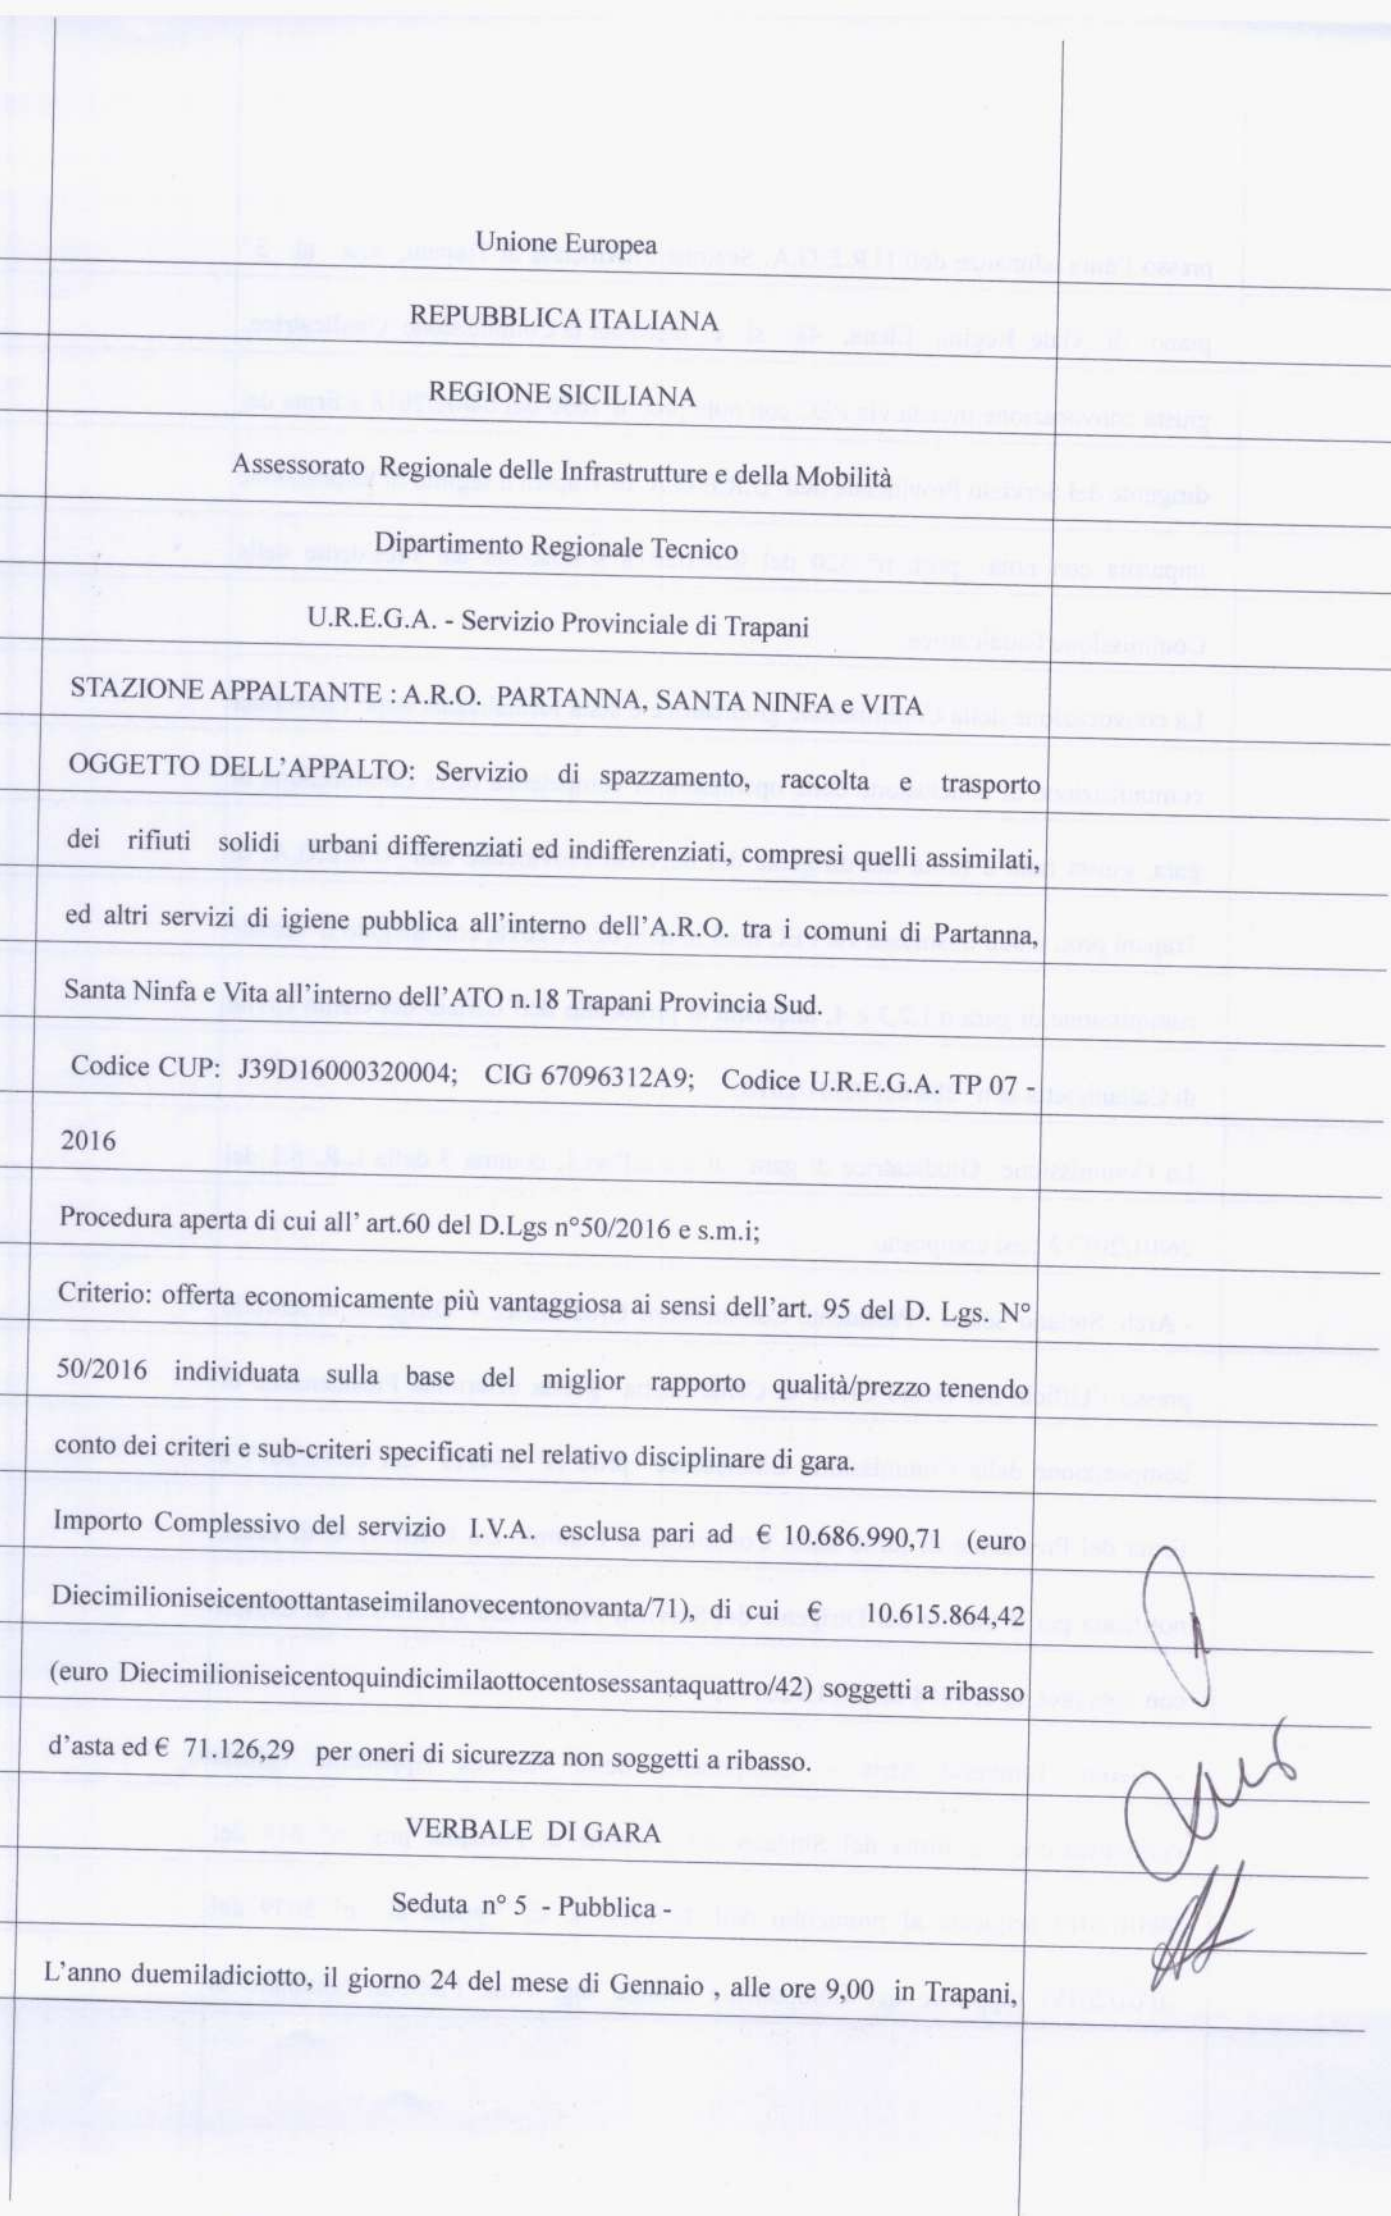 Unione Europea
REPUBBLICA ITALIANA
REGIONE SICILIANA
Assessorato Regionale delle Infrastrutture e della Mobilità
Dipartimento Regionale Tecnico
U.R.E.G.A. - Servizio Provinciale di Trapani
STAZIONE APPALTANTE : A.R.O. PARTANNA, SANTA NINFA e VITA
OGGETTO DELL'APPALTO: Servizio di spazzamento, raccolta e trasporto
dei rifiuti solidi urbani differenziati ed indifferenziati, compresi quelli assimilati,
ed altri servizi di igiene pubblica all'interno dell'A.R.O. tra i comuni di Partanna,
Santa Ninfa e Vita all'interno dell'ATO n.18 Trapani Provincia Sud.
Codice CUP: J39D16000320004; CIG 67096312A9; Codice U.R.E.G.A. TP 07 -
2016
Procedura aperta di cui all' art.60 del D.Lgs n°50/2016 e s.m.i;
Criterio: offerta economicamente più vantaggiosa ai sensi dell'art. 95 del D. Lgs. N°
50/2016 individuata sulla base del miglior rapporto qualità/prezzo tenendo
conto dei criteri e sub-criteri specificati nel relativo disciplinare di gara.
Importo Complessivo del servizio I.V.A. esclusa pari ad € 10.686.990,71 (euro
Diecimilioniseicentoottantaseimilanovecentonovanta/71), di cui € 10.615.864,42
(euro Diecimilioniseicentoquindicimilaottocentosessantaquattro/42) soggetti a ribasso
d'asta ed € 71.126,29 per oneri di sicurezza non soggetti a ribasso.
VERBALE DI GARA
Seduta n° 5 - Pubblica -
L'anno duemiladiciotto, il giorno 24 del mese di Gennaio , alle ore 9,00 in Trapani,